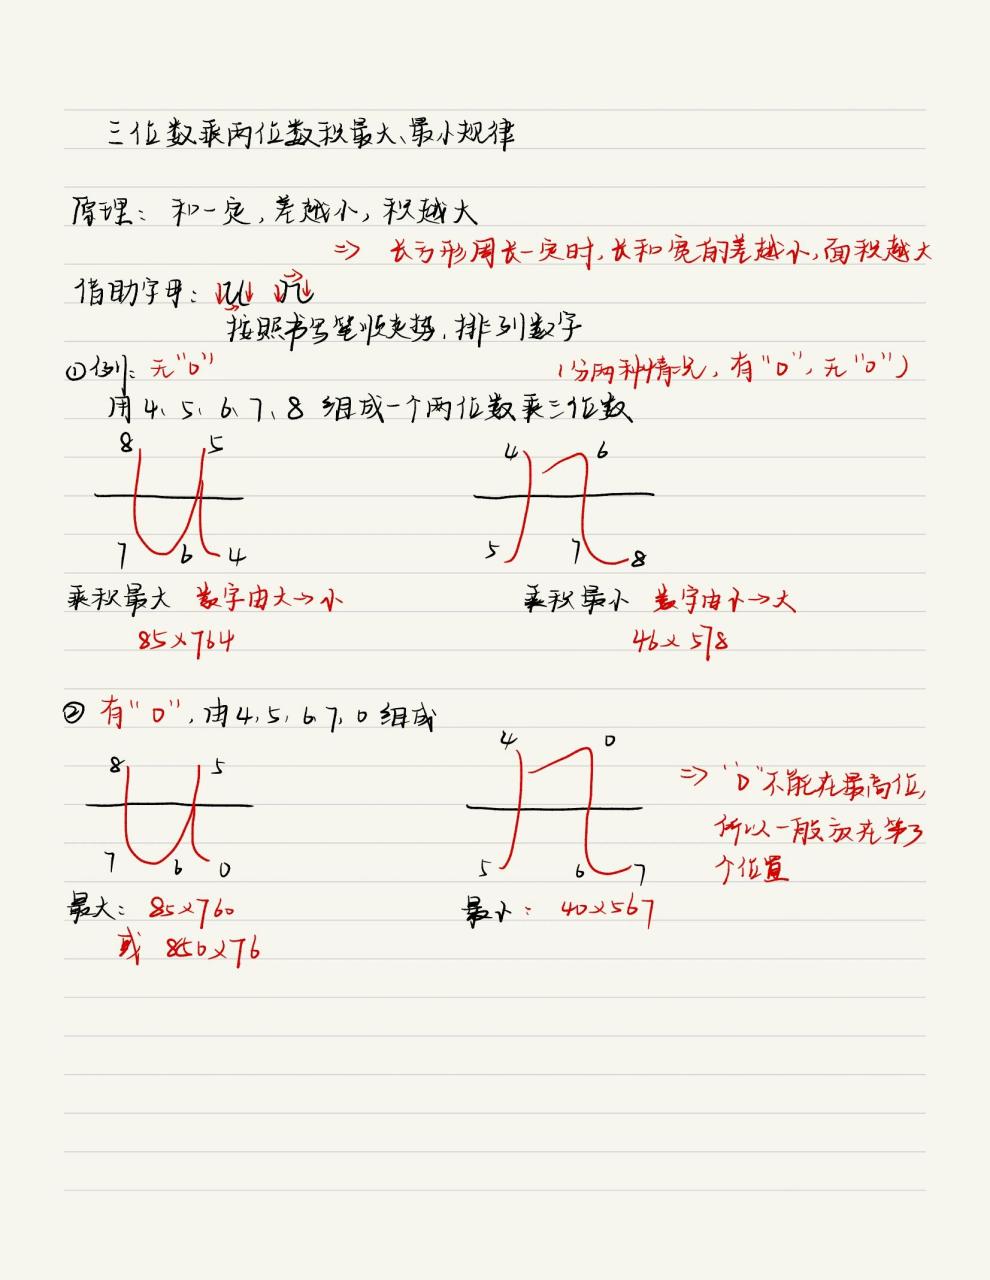 三位数乘两位数积最大、最小规律
原理：和一定，差越小，积越大
⇒ 长方形周长一定时，长和宽的差越小，面积越大
借助字母：U n
按照书写笔顺走势，排列数字
①例：无“0” （分两种情况，有“0”，无“0”）
用4、5、6、7、8组成一个两位数乘三位数
8 5 4 6
7 6 4 5 7 8
乘积最大 数字由大→小 乘积最小 数字由小→大
85×764 46×578
② 有“0”，用4，5，6，7，0组成
8 5 4 0 ⇒ “0”不能在最高位，
所以一般放在第3
7 6 0 5 6 7 个位置
最大：85×760 最小：40×567
或 850×76